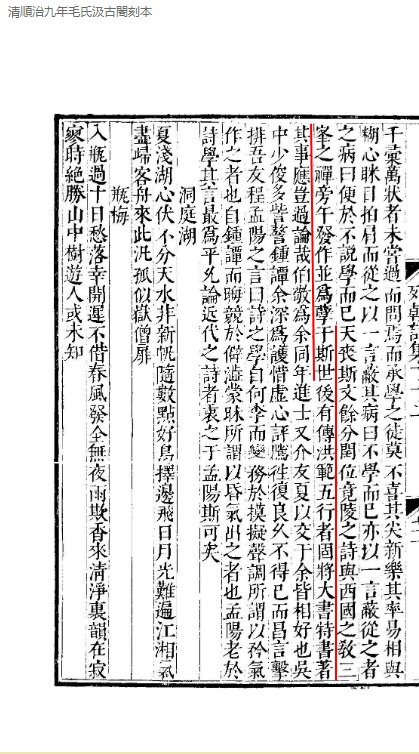 清順治九年毛氏汲古閣刻本
千彙萬狀者未嘗過而問焉而承學之徒莫不喜其尖新樂其率易相與
糊心眯目拍肩而從之以一言蔽其病曰不學而已亦以一言蔽從之者
之病曰便於不說學而已天喪斯文餘分閏位竟陵之詩與西國之敎三
峯之禪旁午發作並爲孽于斯世後有傳洪範五行者固將大書特書著
其事應豈過論哉伯敬爲余同年進士又介友夏以交于余皆相好也吳
中少俊多訾謷鍾譚余深爲護惜虛心評騭往復良久不得已而昌言擊
排吾友程孟陽之言曰詩之學自何李而變務於模擬聲調所謂以矜氣
作之者也自鍾譚而晦競於僻澁蒙昧所謂以昏氣出之者也孟陽老於
詩學其言最爲平允論近代之詩者衷之于孟陽斯可矣
洞庭湖
夏淺湖心伏不分天水非新帆隨數點好鳥擇邊飛日月光難遍江湘氣
盡歸客舟來此汎孤似嶽僧扉
瓶梅
入瓶過十日愁落幸開遲不借春風發全無夜雨欺香來清淨裏韻在寂
寥時絶勝山中樹遊人或未知